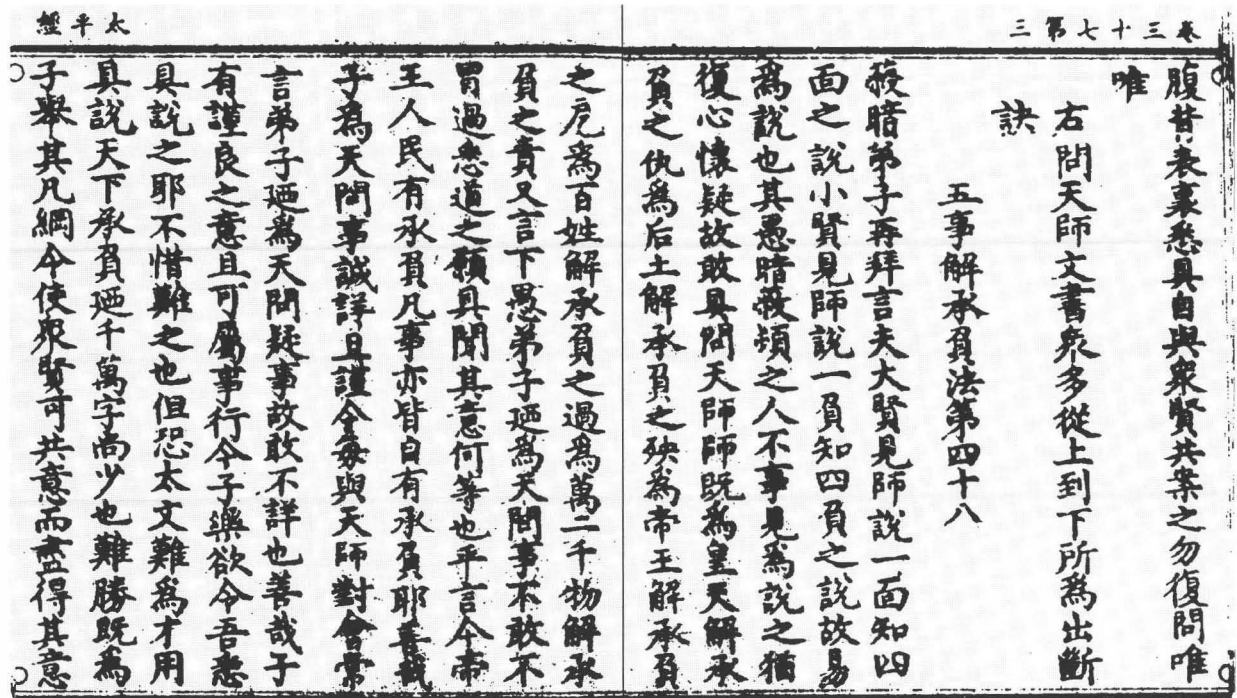 卷三十七第三
腹背表裏悉具自與衆賢共案之勿復問唯
唯
右問天師文書衆多從上到下所爲出斷
訣
五事解承負法第四十八
蔽暗弟子再拜言夫大賢見師說一面知四
面之說小賢見師說一負知四負之說故易
爲說也其愚暗蔽頓之人不事見爲說之猶
復心懷疑故敢具問天師師既爲皇天解承
負之仇爲后土解承負之殃爲帝王解承負
之厄爲百姓解承負之過爲萬二千物解承
負之責又言下愚弟子廼爲天問事不敢不
冒過悉道之願具聞其意何等也平言今帝
王人民有承負凡事亦皆自有承負耶善哉
子爲天問事誠詳且謹今每與天師對會常
言弟子廼爲天問疑事故敢不詳也善哉子
有謹良之意且可屬事行今子樂欲令吾悉
具說之耶不惜難之也但恐太文難爲才用
具說天下承負廼千萬字尚少也難勝既爲
子舉其凡綱令使衆賢可共意而盡得其意
太平經